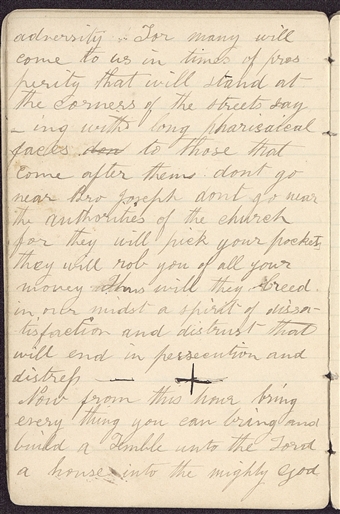 adversity. For many will
come to us in times of pros
perity that will stand at
the corners of the streets say
-ing with long pharisaical
faces to those that
come after them dont go
near Bro Joseph dont go near
the authorities of the church
for they will pick your pockets
they will rob you of all your
money thus will they breed
in our midst a spirit of dissa-
tisfaction and distrust that
will end in persecution and
distress —
Now from this hour bring
every thing you can bring and
build a Temble unto the Lord
a house unto the mighty God